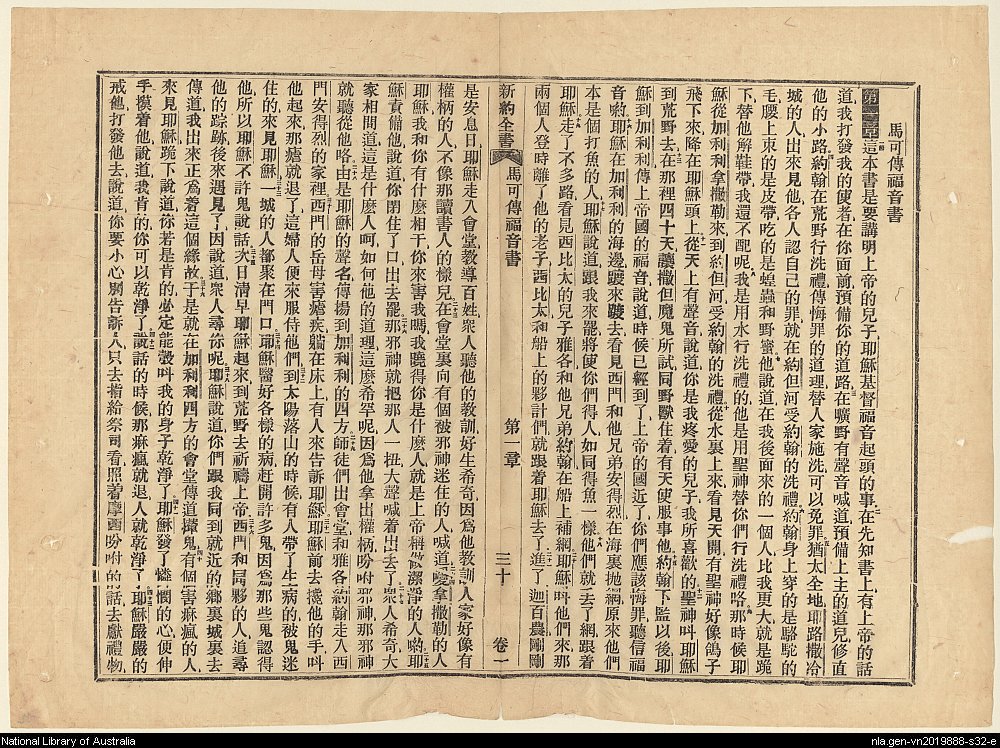 馬可傳福音書
第一章這本書是要講明上帝的兒子耶穌基督福音起頭的事在先知書上有上帝的話
道我打發我的使者在你面前預備你的道路在曠野有聲音喊道預備上主的道兒修直
他的小路約翰在荒野行洗禮傳悔罪的道理替人家施洗可以免罪猶太全地耶路撒冷
城的人出來見他各人認自己的罪就在約但河受約翰的洗禮約翰身上穿的是駱駝的
毛腰上束的是皮帶吃的是蝗蟲和野蜜他說道在我後面來的一個人比我更大就是跪
下替他解鞋帶我還不配呢我是用水行洗禮的他是用聖神替你們行洗禮咯那時候耶
穌從加利利拿撒勒來到約但河受約翰的洗禮從水裏上來看見天開有聖神好像鴿子
飛下來降在耶穌頭上從天上有聲音說道你是我疼愛的兒子我所喜歡的聖神叫耶穌
到荒野去在那裡四十天讓撒但魔鬼所試同野獸住着有天使服事他約翰下監以後耶
穌到加利利傳上帝國的福音說道時候已經到了上帝的國近了你們應該悔罪聽信福
音喲耶穌在加利利的海邊踱來踱去看見西門和他兄弟安得烈在海裏拋網原來他們
本是個打魚的人耶穌說道跟我來罷將使你們得人如同得魚一樣他們就丟了網跟着
耶穌走了不多路看見西比太的兒子雅各和他兄弟約翰在船上補網耶穌叫他們來那
兩個人登時離了他的老子西比太和船上的夥計們就跟着耶穌去了進了迦百農剛剛
新約全書 馬可傳福音書 第一章 三十 卷一
是安息日耶穌走入會堂教導百姓衆人聽他的教訓好生希奇因爲他教訓人家好像有
權柄的人不像那讀書人的樣兒在會堂裏向有個被邪神迷住的人喊道噯拿撒勒的人
耶穌我和你有什麽相干你來害我嗎我曉得你是什麽人就是上帝稱做潔淨的人喲耶
穌責備他說道你閉住了口出去罷那邪神就把那人一扭大聲喊着出去了衆人希奇大
家相問道這是什麽人呵如何他的道理這麽希罕呢因爲他拿出權柄吩咐邪神那邪神
就聽從他咯由是耶穌的聲名傳揚到加利利的四方師徒們出會堂和雅各約翰走入西
門安得烈的家裡西門的岳母害瘧疾躺在床上有人來告訴耶穌耶穌前去攙他的手叫
他起來那瘧就退了這婦人便來服侍他們到太陽落山的時候有人帶了生病的被鬼迷
住的來見耶穌一城的人都聚在門口耶穌醫好各樣的病赶開許多鬼因爲那些鬼認得
他所以耶穌不許鬼說話次日清早耶穌起來到荒野去祈禱上帝西門和同夥的人追尋
他的踪跡後來遇見了因說道衆人尋你呢耶穌說道你們跟我同到就近的鄉裏城裏去
傳道我出來正爲着這個緣故于是就在加利利四方的會堂傳道攆鬼有個害痳瘋的人
來見耶穌跪下說道你若是肯的必定能彀叫我的身子乾淨了耶穌發了憐憫的心便伸
手摸着他說道我肯的你可以乾淨了說話的時候那痳瘋就退人就乾淨了耶穌嚴嚴的
戒他打發他去說道你要小心別告訴人只去指給祭司看照着摩西吩咐的話去獻禮物
National Library of Australia
nla.gen-vn2019888-s32-e